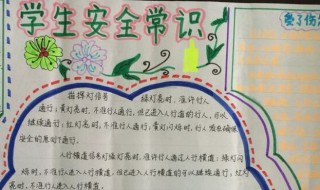 学生安全常识
指挥灯信号 绿灯亮时,准许行人
通行;黄灯亮时,不准行人通行,但已进入行道的行人,可以
继续通行;红灯亮时,不准行人通行;黄灯闪烁时,行人须在确保
安全的原则下通行.
人行横道信号灯绿灯亮时,准许行人通过人行横道;绿灯闪
烁时,不准行人进入人行横道,但已进入人行横道的可以继续通行;红灯
亮时,不准行人进入人行横道